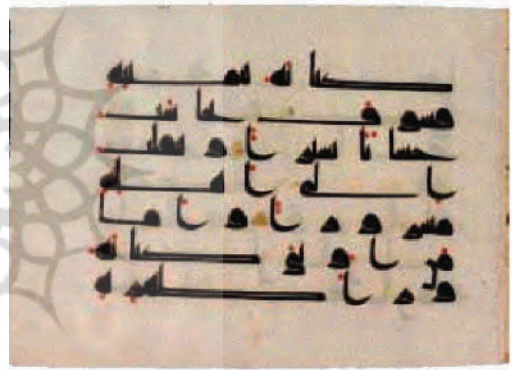 كتابه بيمينه
فسوف يحاسب
حسابا يسيرا وينقلب
الى اهله
مسرورا واما
من اوتى كتابه
ورا ظهره